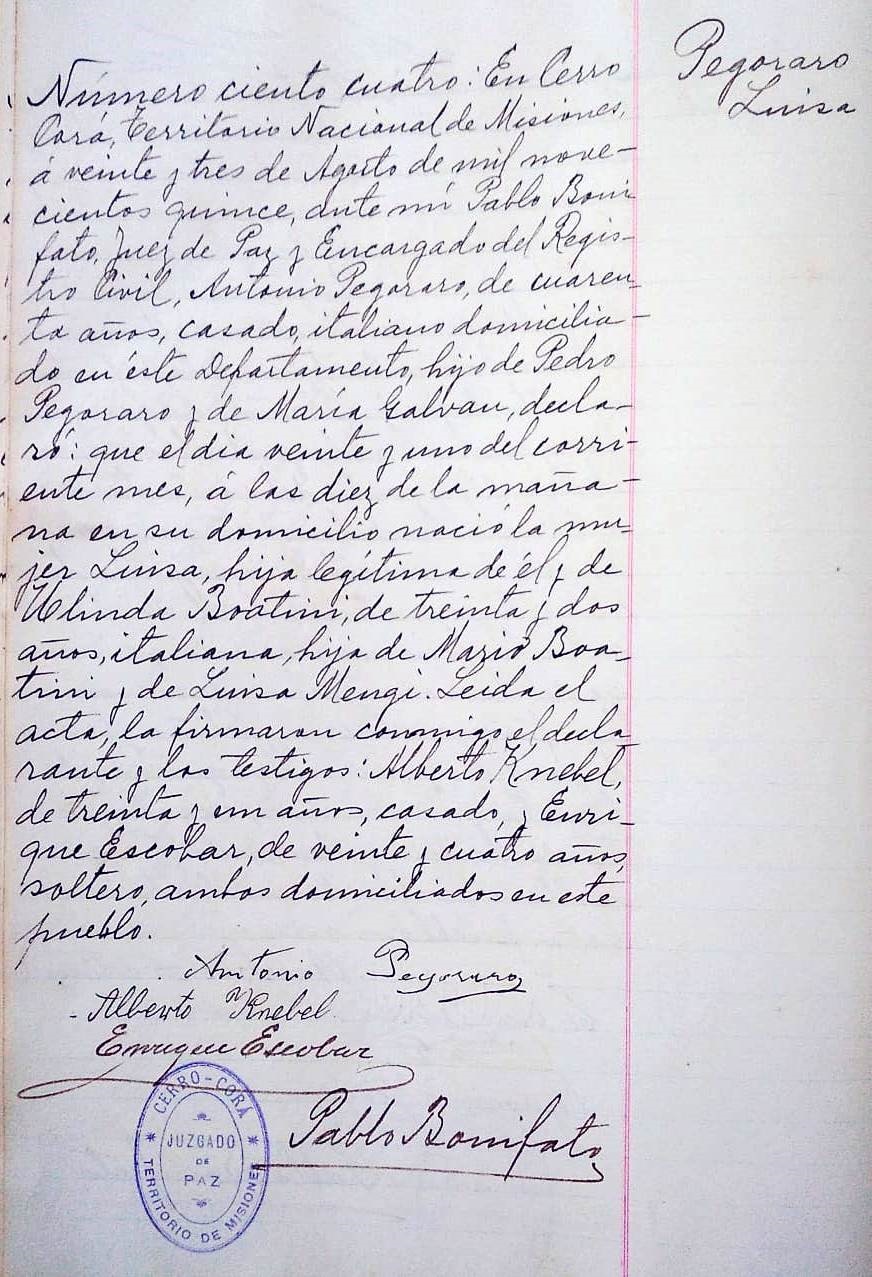 Pegoraro
Luisa
Número ciento cuatro: En Cerro
Corá, Territorio Nacional de Misiones,
á veinte y tres de Agosto de mil nove-
cientos quince, ante mí Pablo Boni
fato, Juez de Paz y Encargado del Regis-
tro Civil, Antonio Pegoraro, de cuaren-
ta años, casado, italiano domicilia-
do en éste Departamento, hijo de Pedro
Pegoraro y de María Galvan, decla-
ró: que el dia veinte y uno del corri-
ente mes, á las diez de la maña-
na en su domicilio nació la mu-
jer Luisa, hija legítima de él y de
Ulinda Boatini, de treinta y dos
años, italiana, hija de Mario Boa-
tini y de Luisa Mengi. Leida el
acta, la firmaron conmigo el decla
rante y los testigos: Alberto Knebel,
de treinta y un años, casado, y Enri-
que Escobar, de veinte y cuatro años,
soltero, ambos domiciliados en este
pueblo.
Antonio Pegoraro
Alberto Knebel
Enrique Escobar
Pablo Bonifato
CERRO-CORÁ
JUZGADO
DE
PAZ
TERRITORIO DE MISIONES